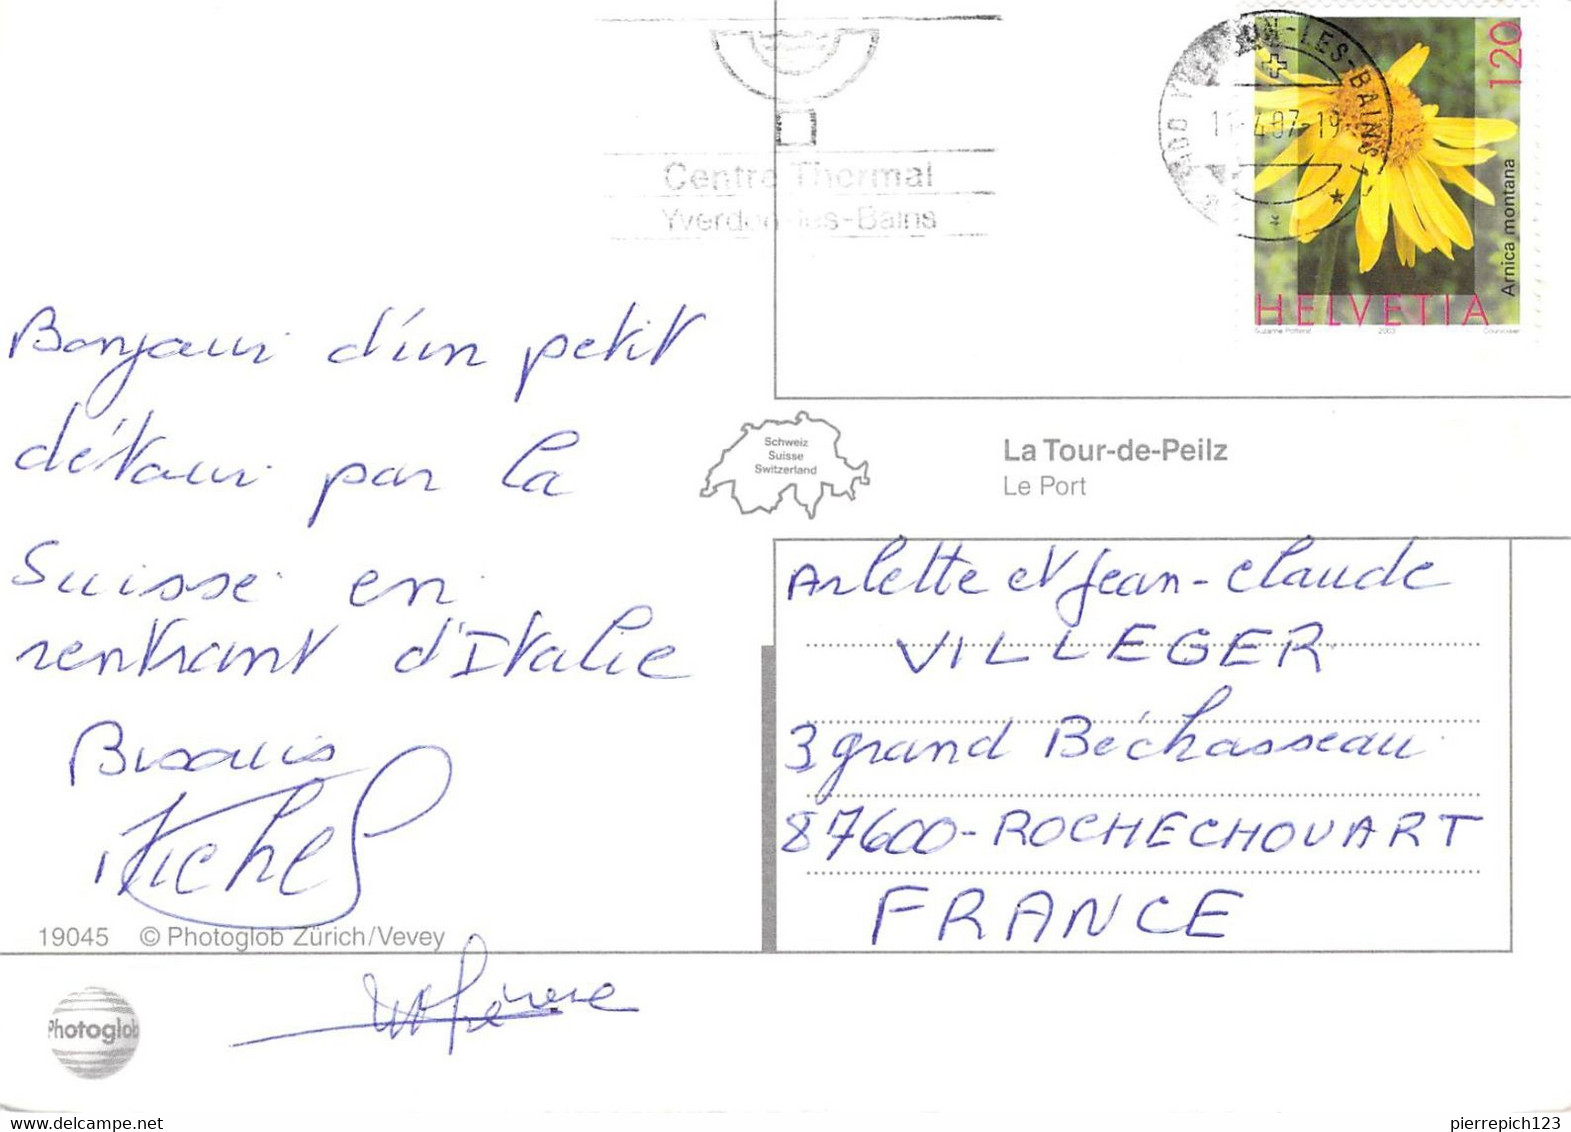 Centre Thermal
Yverdon-les-Bains
YVERDON-LES-BAINS 1
HELVETIA
120
Arnica montana
Suzanne Potterat 2003 Courvoisier
Bonjour d'un petit
détour par la
Suisse en
rentrant d'Italie
Bisous
Michel
Schweiz
Suisse
Switzerland
La Tour-de-Peilz
Le Port
Arlette et Jean-Claude
VILLEGER
3 grand Béchasseau
87600-ROCHECHOUART
FRANCE
19045 © Photoglob Zürich/Vevey
Photoglob
pierrepich123